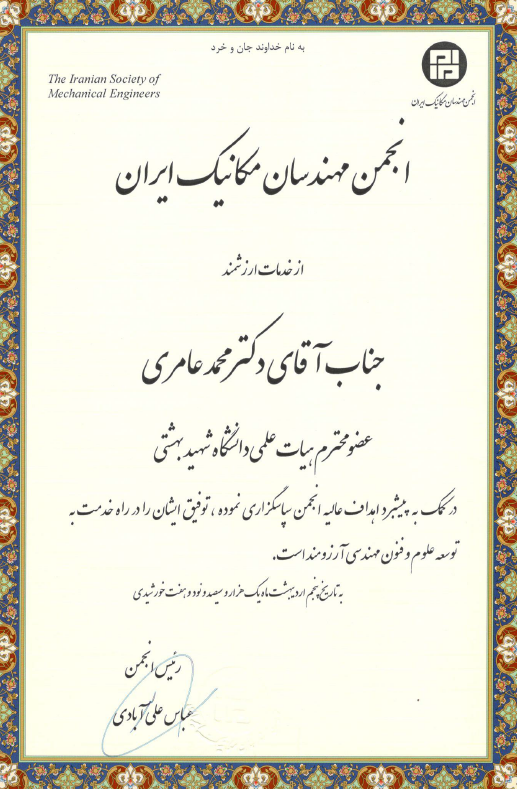 به نام خداوند جان و خرد
The Iranian Society of
Mechanical Engineers
انجمن مهندسان مکانیک ایران
انجمن مهندسان مکانیک ایران
از خدمات ارزشمند
جناب آقای دکتر محمد عامری
عضو محترم هیات علمی دانشگاه شهید بهشتی
در کمک به پیشبرد اهداف عالیه انجمن سپاسگزاری نموده ، توفیق ایشان را در راه خدمت به
توسعه علوم و فنون مهندسی آرزومند است.
به تاریخ پنجم اردیبهشت ماه یک هزار و سیصد و نود و هفت خورشیدی
رئیس انجمن
عباس علی آبادی